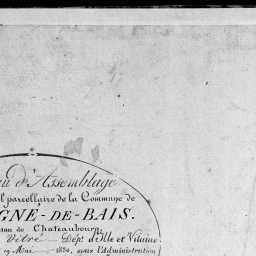 d'Assemblage
parcellaire de la Commune de
GNE-DE-BAIS.
de Chateaubourg
Vitré Dépt. d'Ille et Vilaine
Mai 1830, sous l'Administration